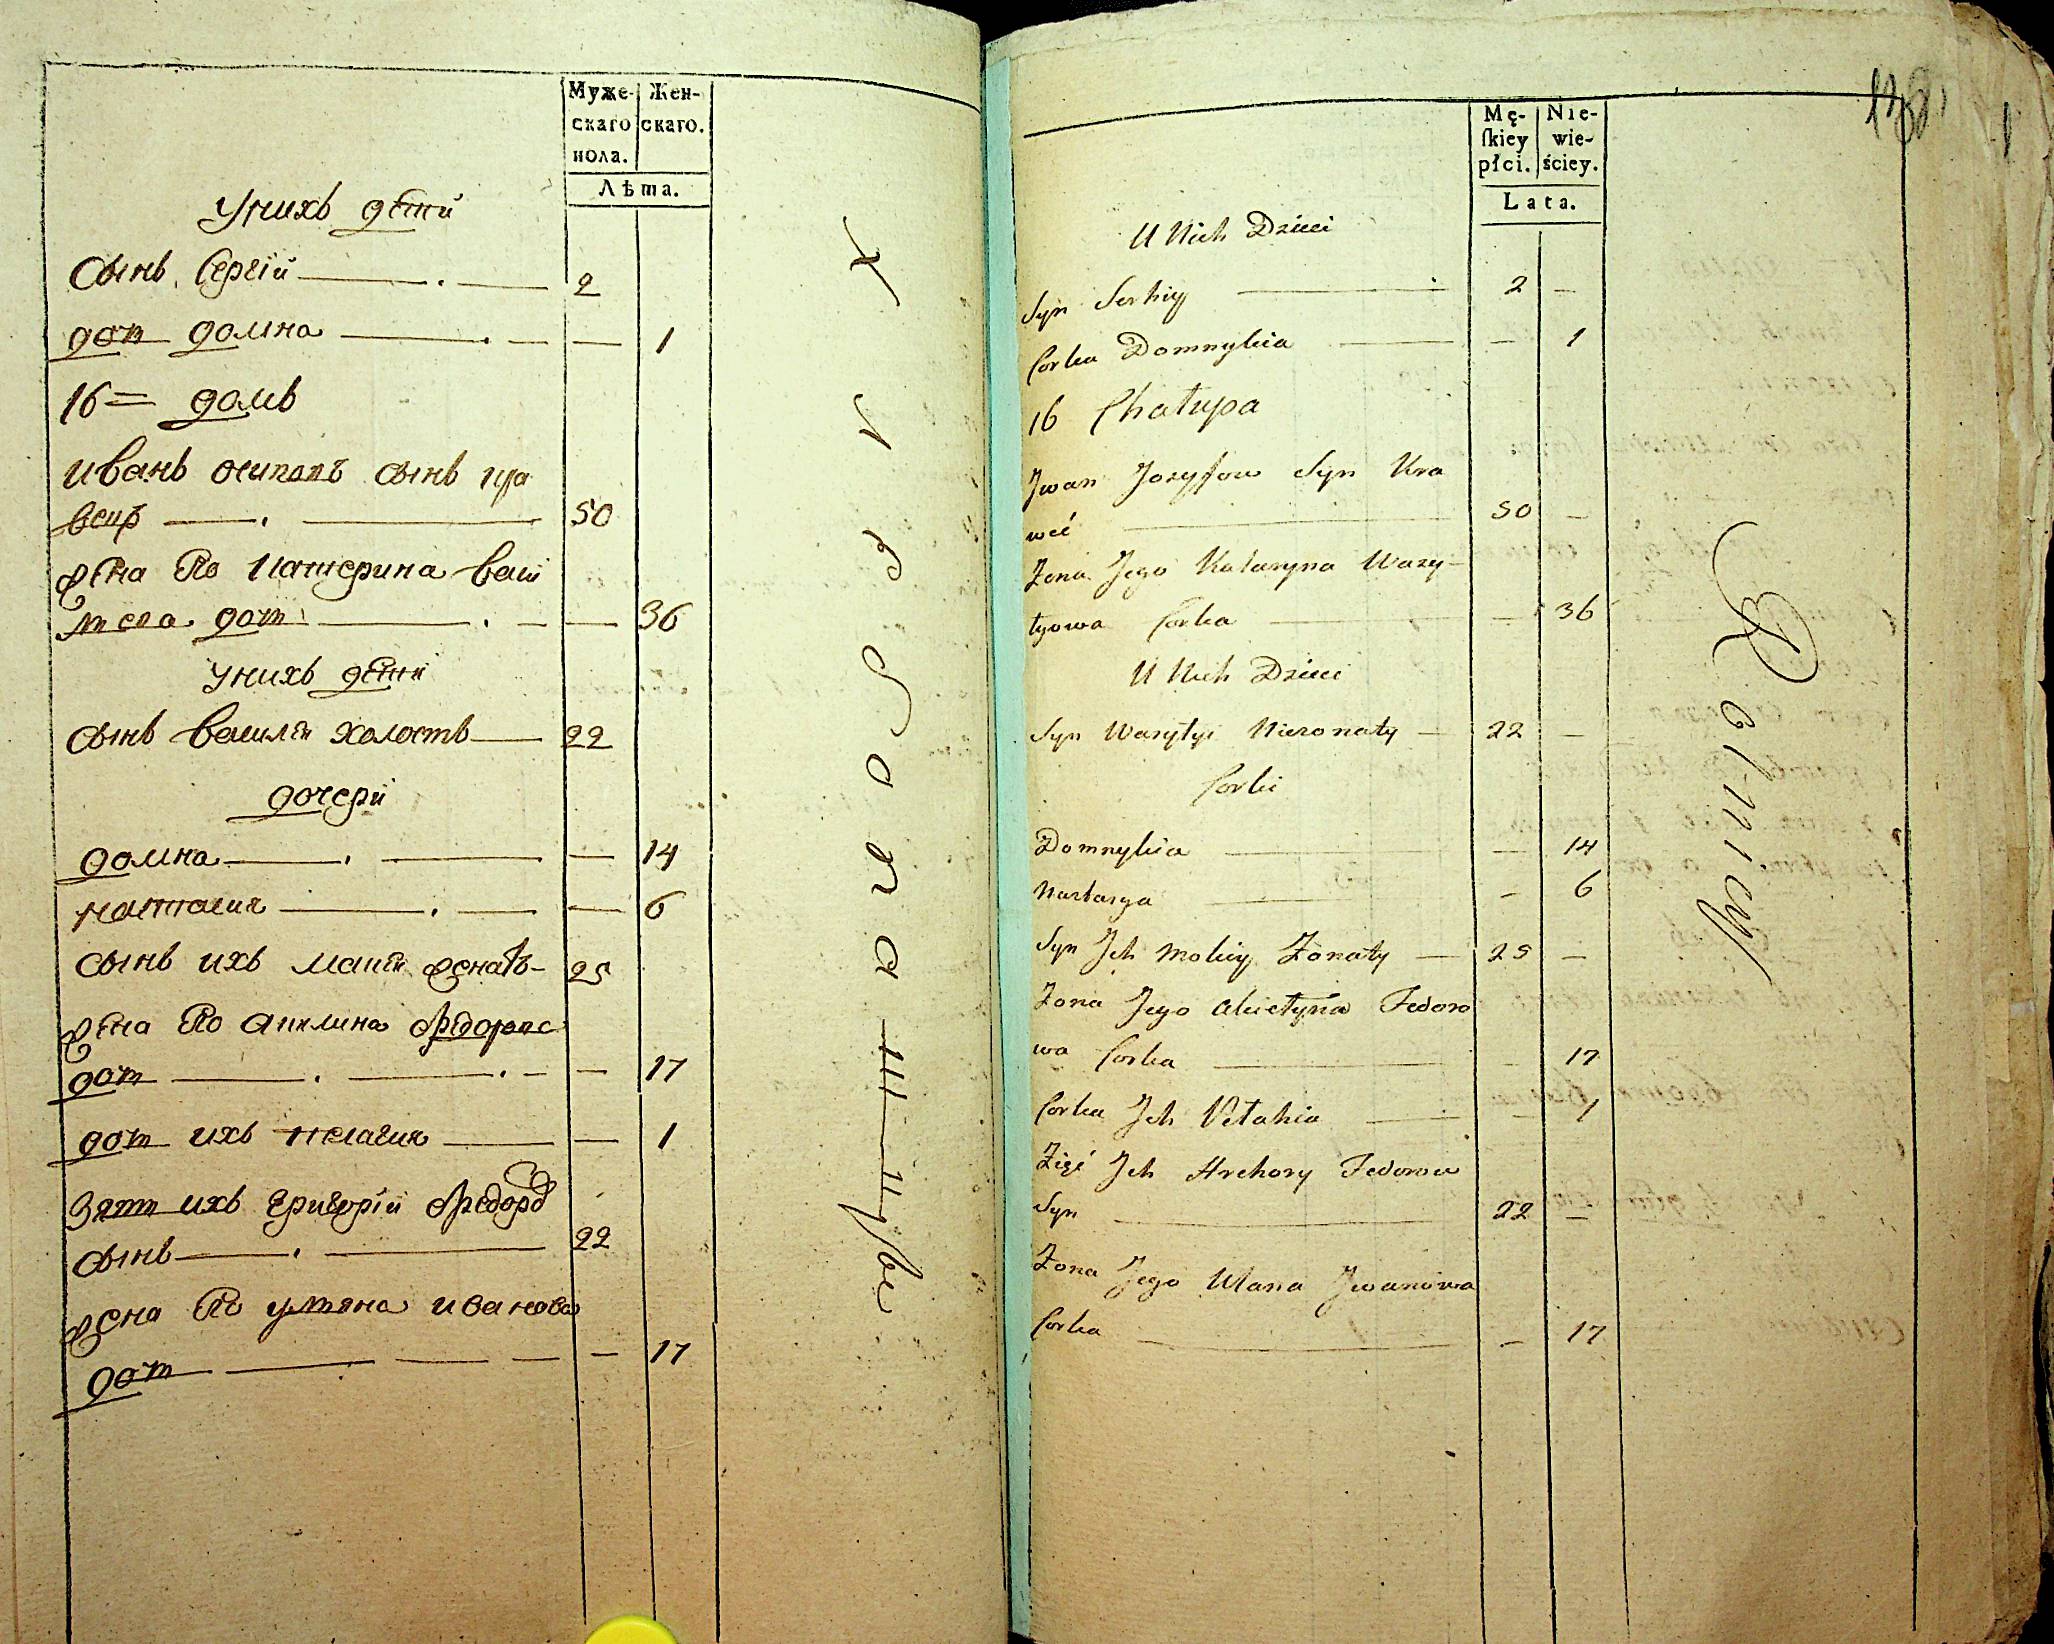 Муже-
скаго
пола.
Жен-
скаго.
Лѣта.
У нихъ дѣти
Сынъ Сергій 2
доч домна 1
16 = домъ
иванъ осиповъ сынъ кра
вецъ 50
жена его катерина васи
лиева доч 36
У нихъ дѣти
сынъ василій холостъ 22
дочери
домна 14
настасия 6
сынъ ихъ макій женатъ 25
жена его акилина федорова
доч 17
доч ихъ пелагия 1
Зять ихъ григорій федоров
сынъ 22
жена его улияна иванова
доч 17
138
Mę-
skiey
płci.
Nie-
wie-
ściey.
Lata.
U Nich Dzieci
Syn Serhiy 2 —
Corka Domnykia — 1
16 Chałupa
Jwan Jozyfow Syn Kra
weć 50 —
Żona Jego Kataryna Wasy-
lyowa Corka — 36
U Nich Dzieci
Syn Wasylyi Nieżonaty 22 —
Corki
Domnykia — 14
Nastasya — 6
Syn Jch Mokiy Żonaty 25 —
Żona Jego Akielyna Fedoro
wa Corka — 17
Corka Jch Pełahia — 1
Zięć Jch Hrehory Fedorow
Syn 22 —
Żona Jego Ulana Jwanowa
Corka — 17
Rolniey